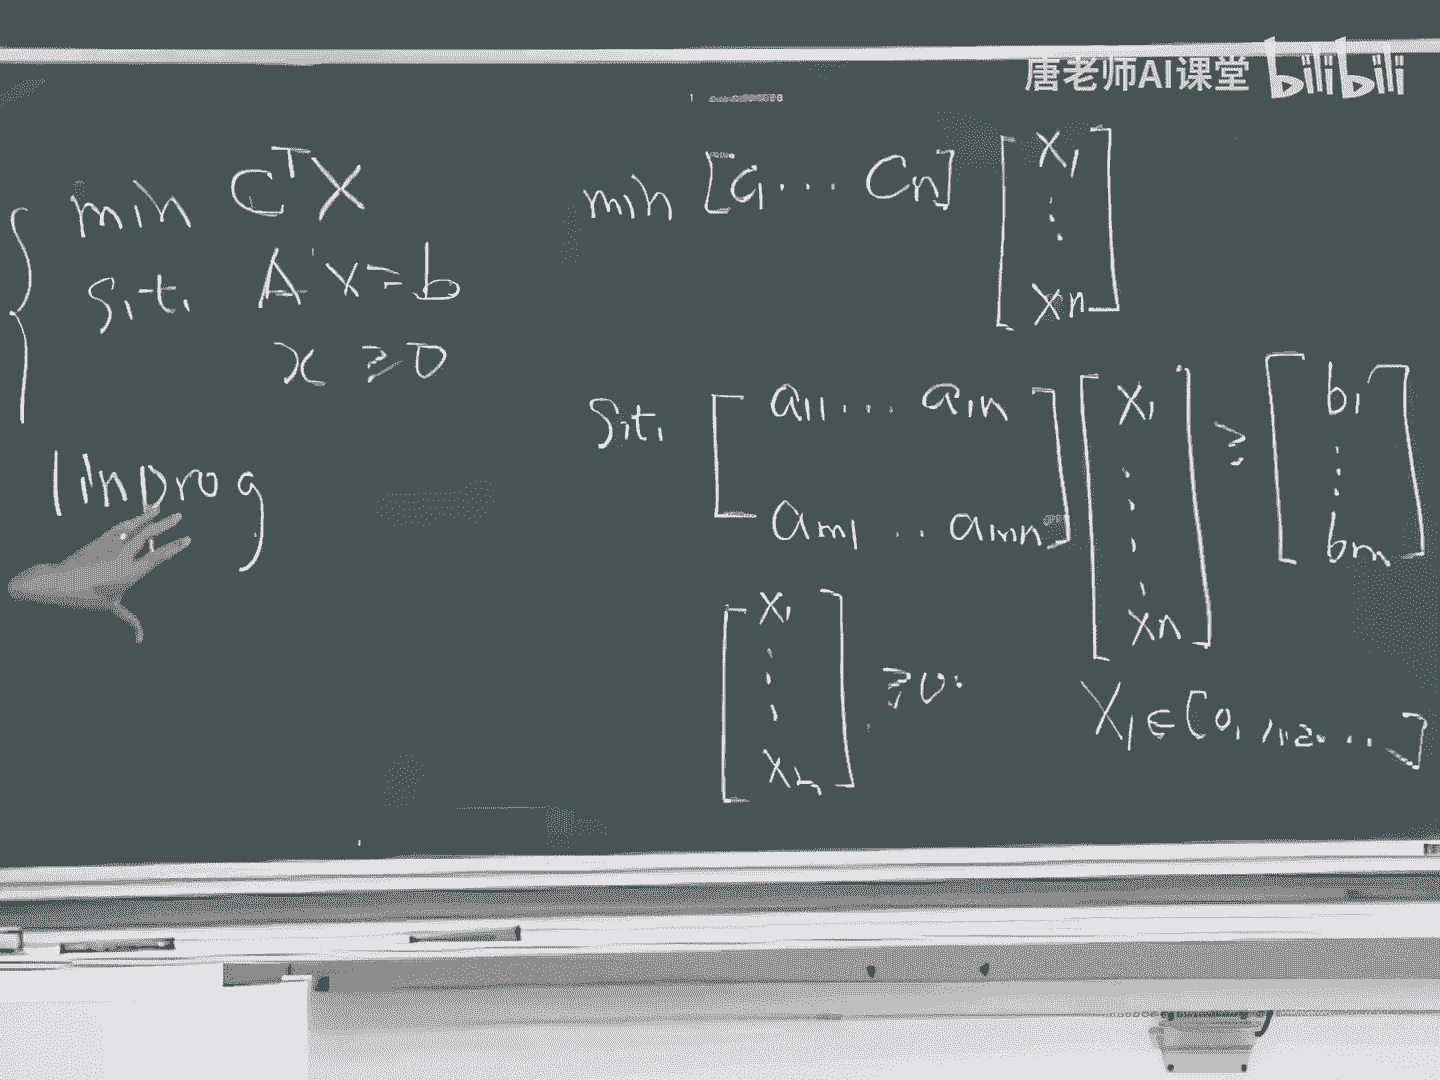 唐老师AI课堂 bilibili
min CᵀX
s.t. Ax=b
x ≥0
linprog
min [C1 ··· Cn] [x1 ⋮ xn]
s.t. [a11 ··· a1n am1 ·· amn] [x1 ⋮ xn] ≥ [b1 ⋮ bm]
[x1 ⋮ xn] ≥0.
X1∈[0, 1, 2, ...]